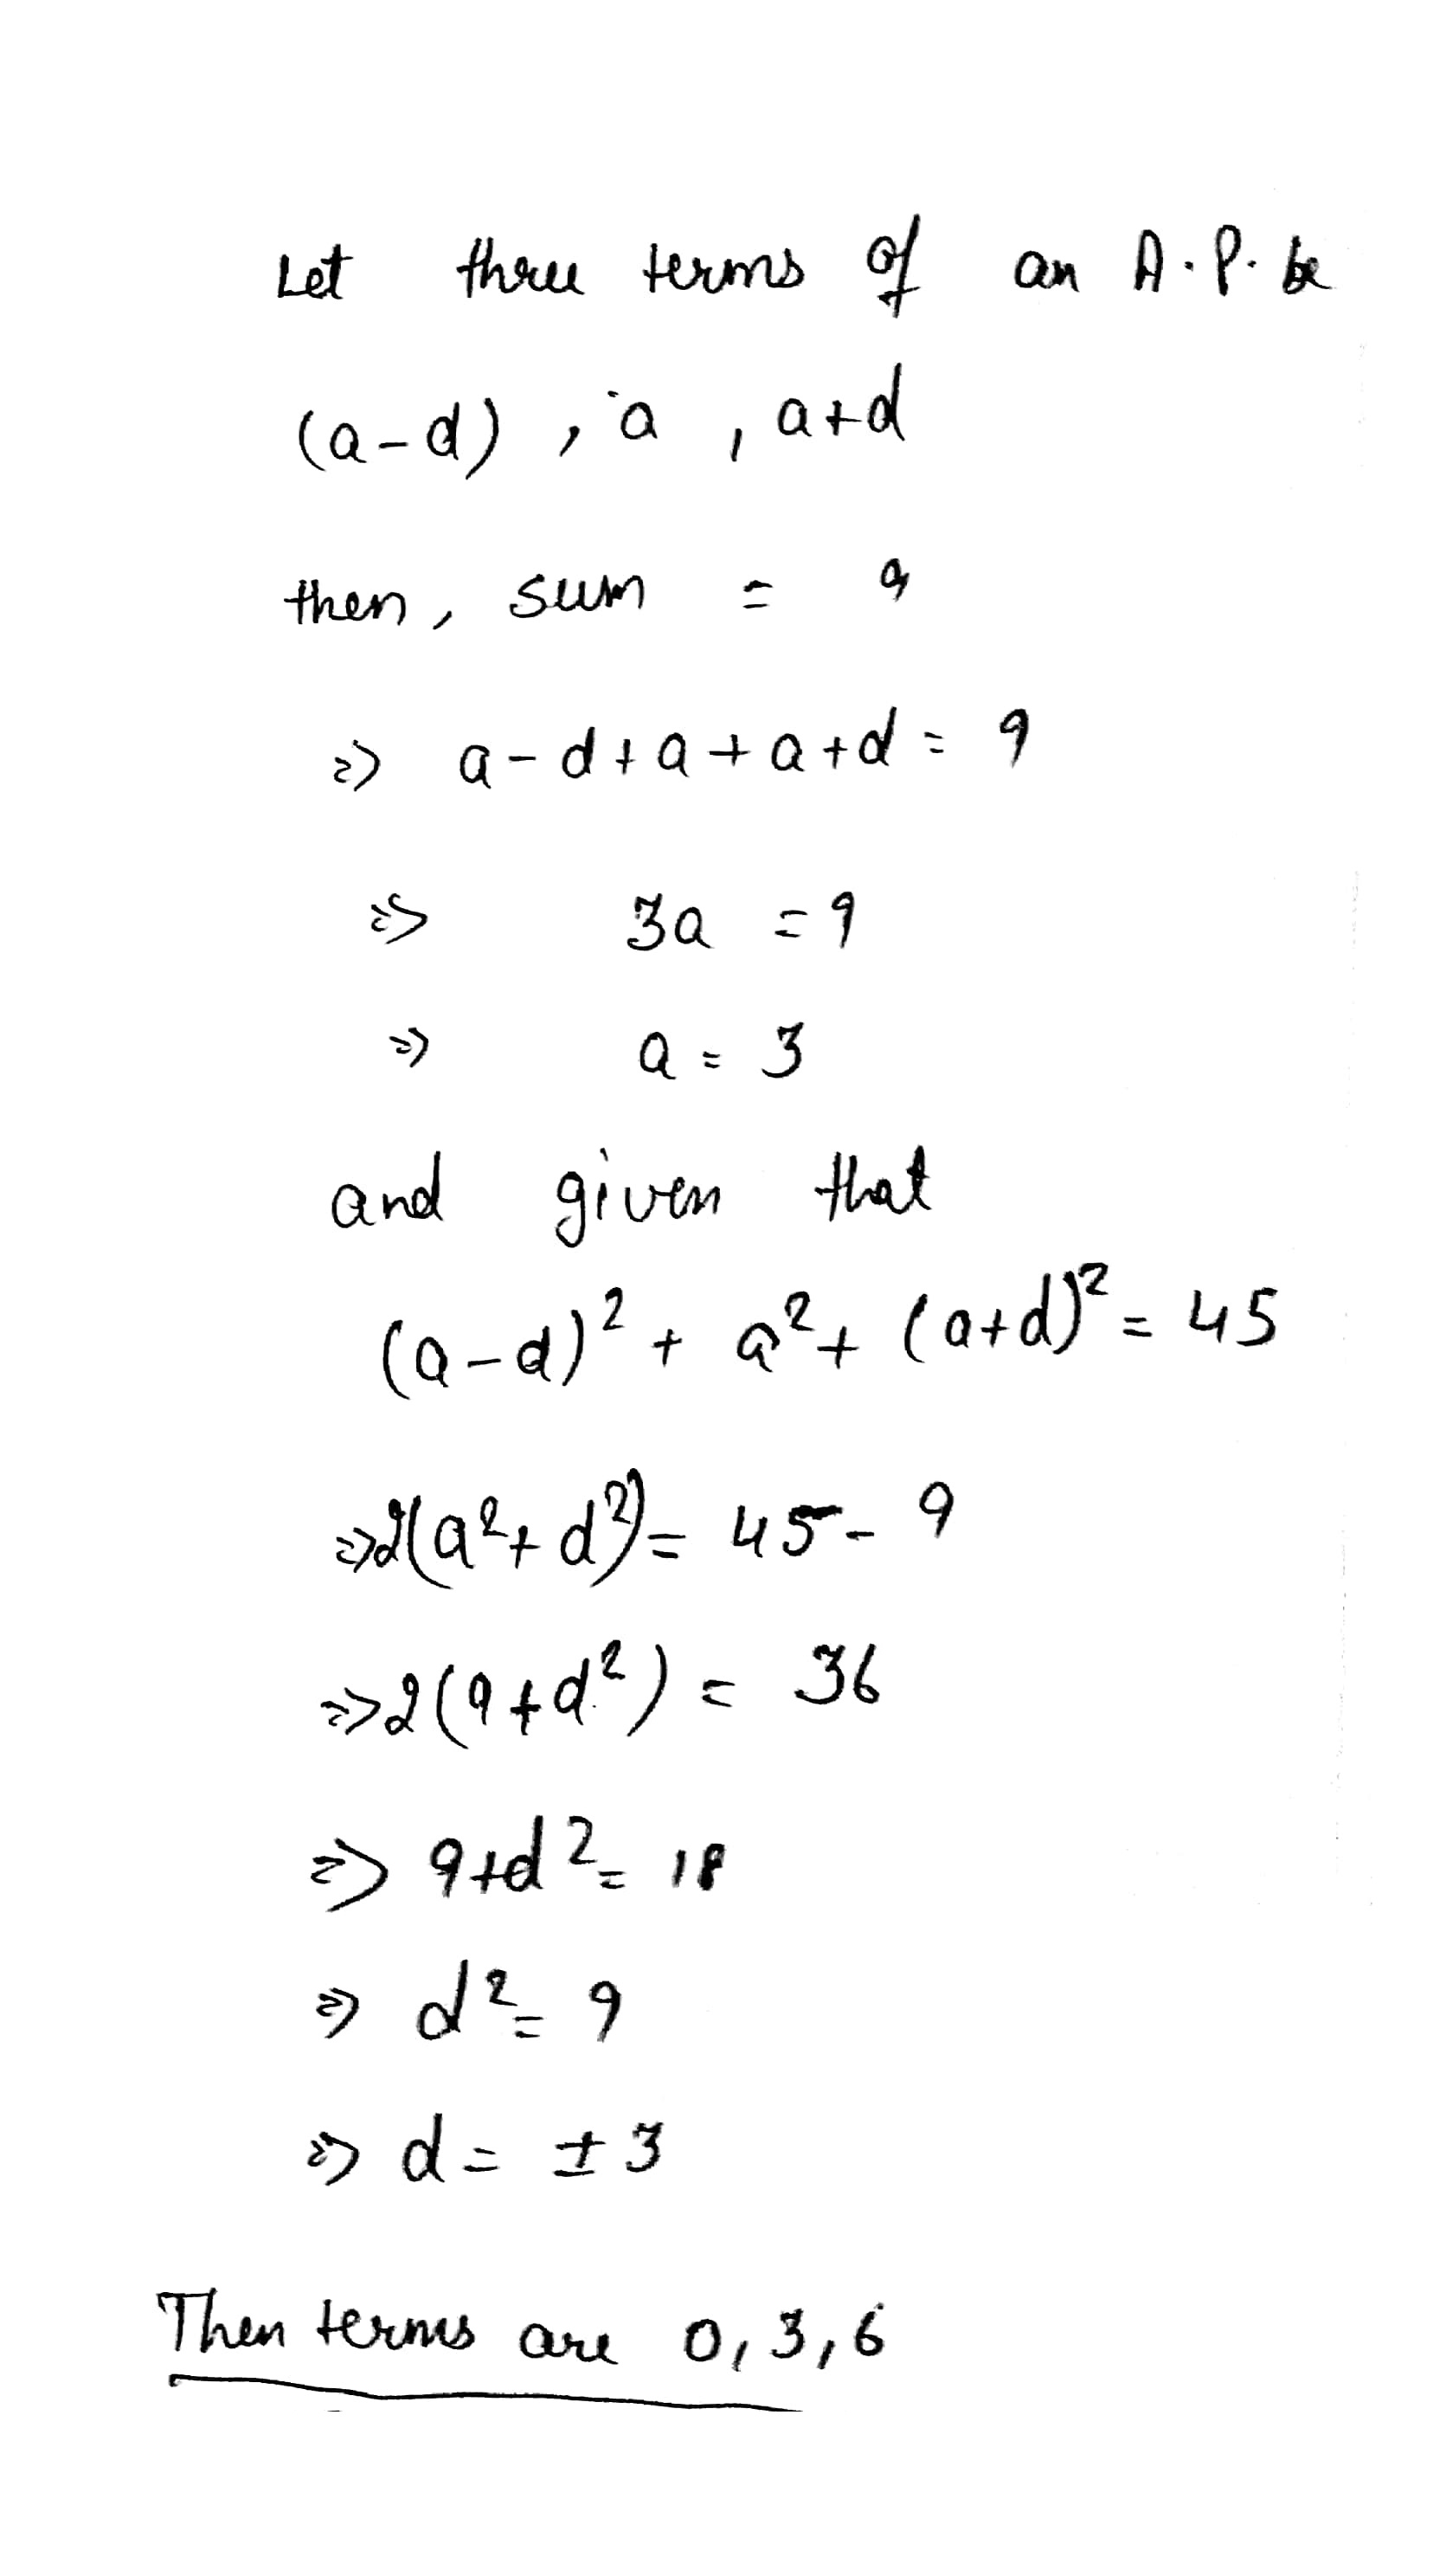 Let three terms of an A.P. be
(a-d) , a , a+d
then, sum = 9
=> a-d+a+a+d = 9
=> 3a = 9
=> a = 3
and given that
(a-d)² + a² + (a+d)² = 45
=>2(a²+d²)= 45-9
=>2(9+d²) = 36
=> 9+d² = 18
=> d² = 9
=> d = ±3
Then terms are 0,3,6